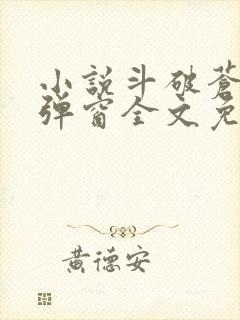 小說斗破蒼
彈窗全文免
黃德安